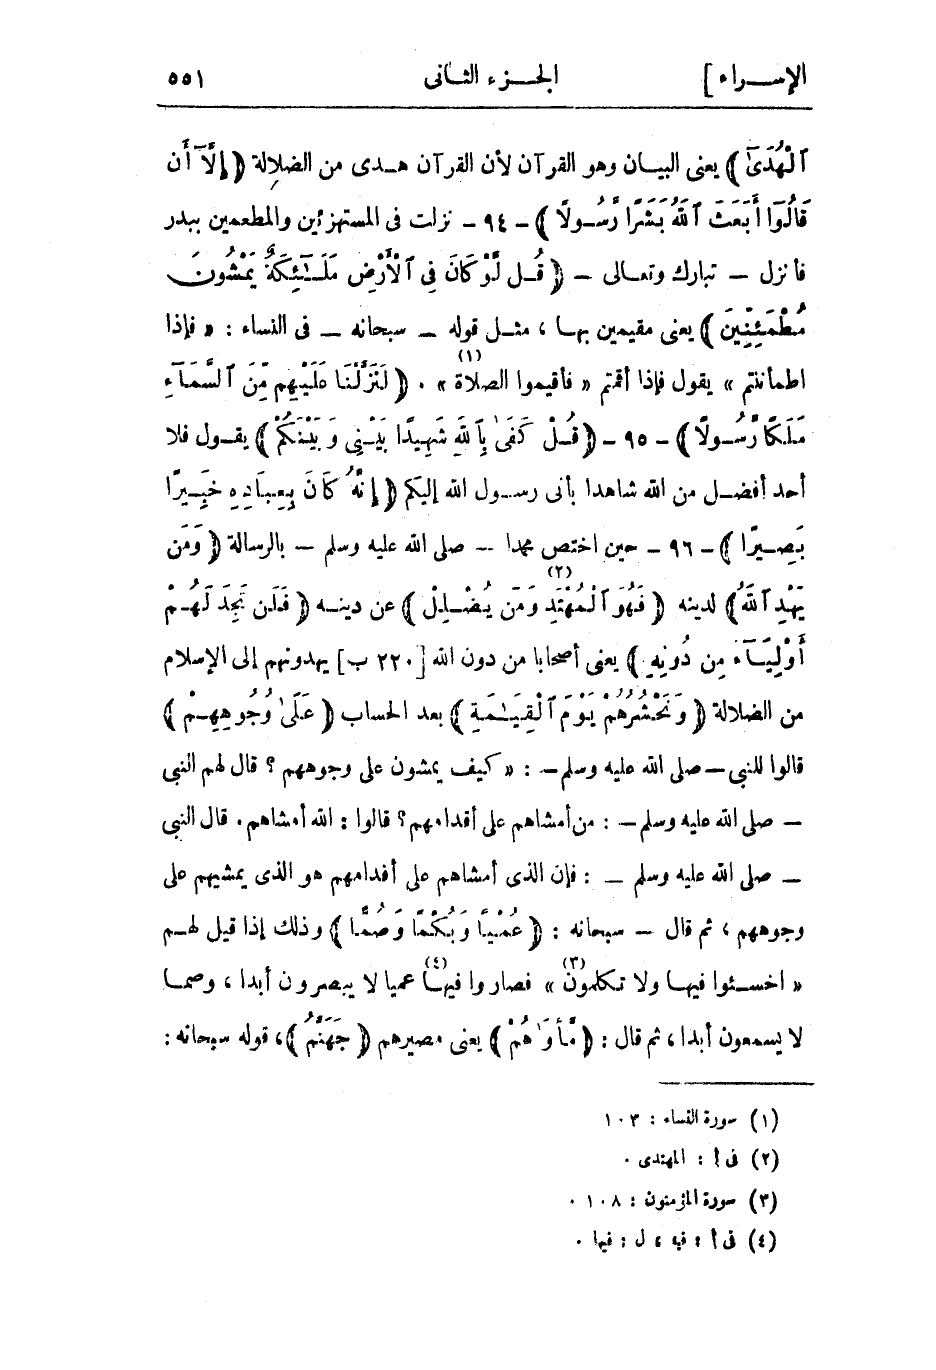 الإسراء ] الجزء الثانى ٥٥١
ٱلْهُدَىٰٓ ) يعنى البيان وهو القرآن لأن القرآن هدى من الضلالة ( إِلَّآ أَن
قَالُوٓا أَبَعَثَ ٱللَّهُ بَشَرًا رَّسُولًا ) - ٩٤ - نزلت فى المستهزئين والمطعمين ببدر
فأنزل — تبارك وتعالى — ( قُل لَّوْ كَانَ فِى ٱلْأَرْضِ مَلَـٰٓئِكَةٌ يَمْشُونَ
مُطْمَئِنِّينَ ) يعنى مقيمين بها ، مثل قوله — سبحانه — فى النساء : « فإذا
اطمأننتم » يقول فإذا أقمتم « فأقيموا الصلاة (١) » . ( لَنَزَّلْنَا عَلَيْهِم مِّنَ ٱلسَّمَآءِ
مَلَكًا رَّسُولًا ) - ٩٥ - ( قُلْ كَفَىٰ بِٱللَّهِ شَهِيدًا بَيْنِى وَبَيْنَكُمْ ) يقول فلا
أحد أفضل من الله شاهدا بأنى رسول الله إليكم ( إِنَّهُ كَانَ بِعِبَادِهِ خَبِيرًا
بَصِيرًا ) - ٩٦ - حين اختص محمدا — صلى الله عليه وسلم — بالرسالة ( وَمَن
يَهْدِ ٱللَّهُ ) لدينه ( فَهُوَ ٱلْمُهْتَدِ (٢) وَمَن يُضْلِلْ ) عن دينه ( فَلَن تَجِدَ لَهُمْ
أَوْلِيَآءَ مِن دُونِهِ ) يعنى أصحابا من دون الله [ ٢٢٠ ب ] يهدونهم إلى الإسلام
من الضلالة ( وَنَحْشُرُهُمْ يَوْمَ ٱلْقِيَـٰمَةِ ) بعد الحساب ( عَلَىٰ وُجُوهِهِمْ )
قالوا للنبى — صلى الله عليه وسلم — : « كيف يمشون على وجوههم ؟ قال لهم النبى
— صلى الله عليه وسلم — : من أمشاهم على أقدامهم ؟ قالوا : الله أمشاهم . قال النبى
— صلى الله عليه وسلم — : فإن الذى أمشاهم على أقدامهم هو الذى يمشيهم على
وجوههم ، ثم قال — سبحانه : ( عُمْيًا وَبُكْمًا وَصُمًّا ) وذلك إذا قيل لهم
« اخسئوا فيها ولا تكلمون (٣) » فصاروا فيها (٤) عميا لا يبصرون أبدا ، وصما
لا يسمعون أبدا ، ثم قال : ( مَّأْوَىٰهُمْ ) يعنى مصيرهم ( جَهَنَّمُ ) ، قوله سبحانه :
(١) سورة النساء : ١٠٣
(٢) فى أ : المهتدى .
(٣) سورة المؤمنون : ١٠٨ .
(٤) فى أ : فيه ، ل : فيها .